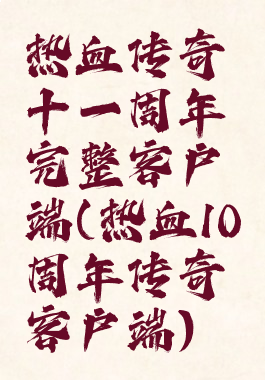 热血传奇
十一周年
完整客户
端(热血10
周年传奇
客户端)